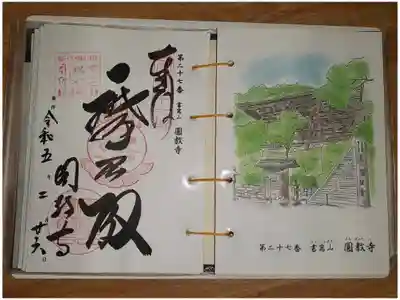 第二十七番 書寫山 圓教寺
奉拝
摩尼殿
圓教寺
令和五 二 廿六日
第二十七番 書寫山 圓教寺